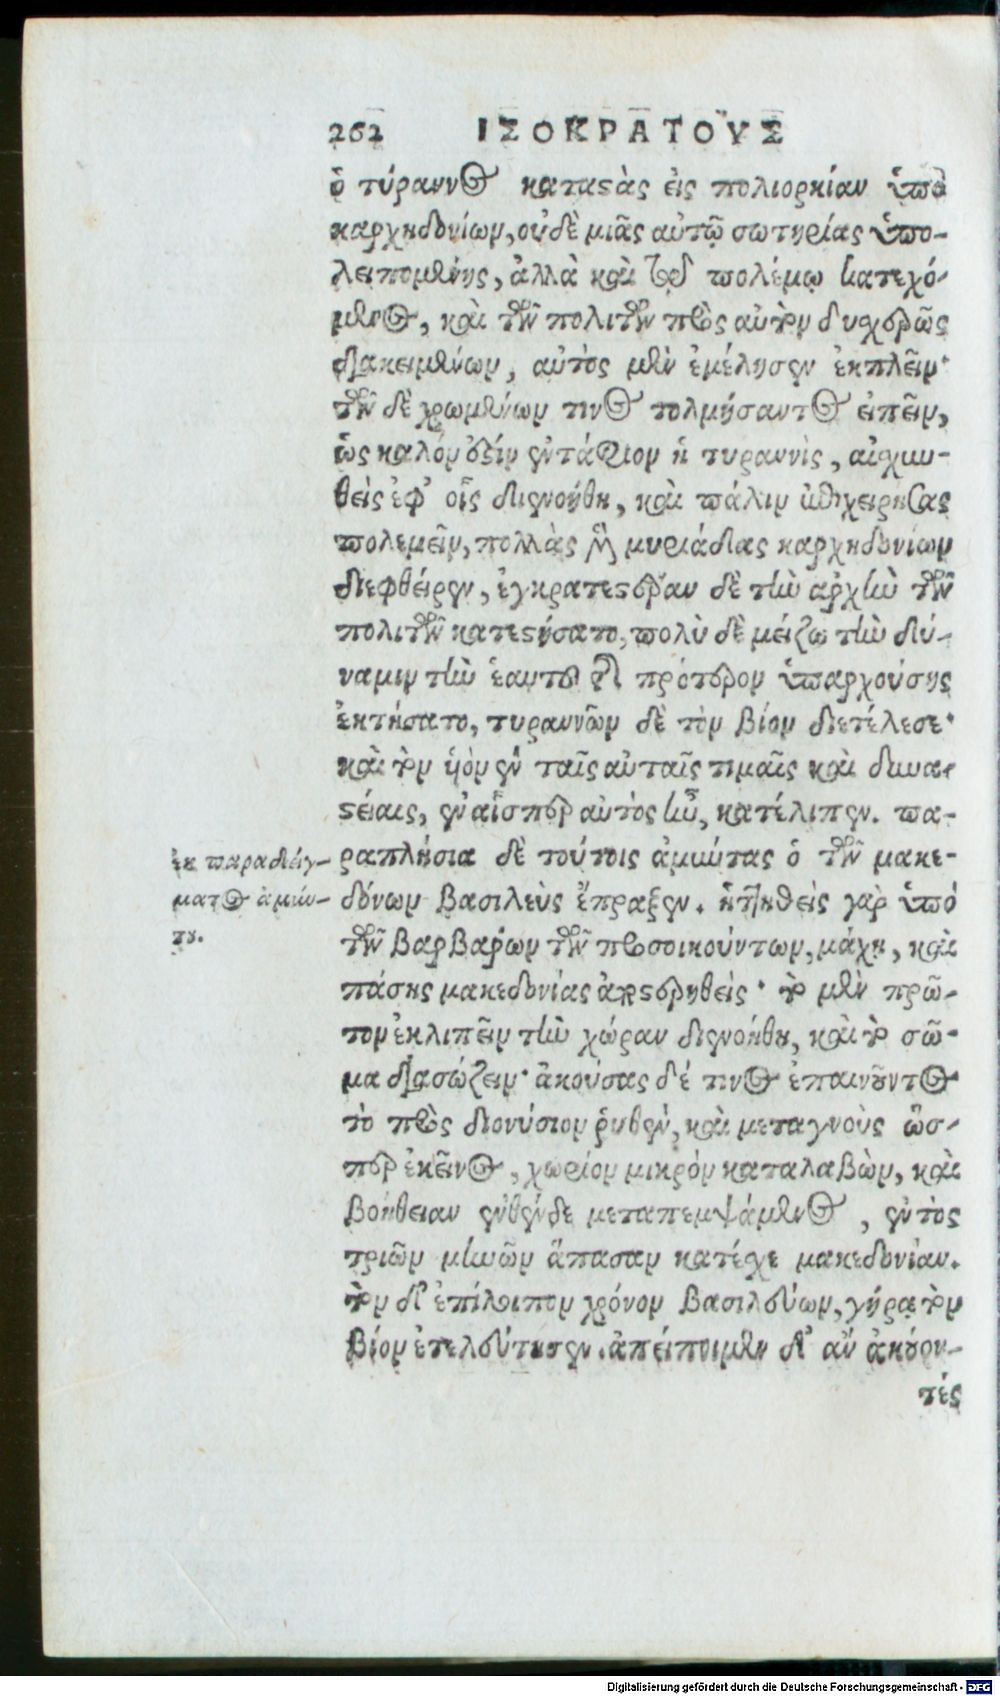 262 ΙΣΟΚΡΑΤΟΥΣ
ὁ τύραννος καταστὰς εἰς πολιορκίαν ὑπὸ
καρχηδονίων, οὐδὲ μιᾶς αὐτῷ σωτηρίας ὑπο-
λειπομένης, ἀλλὰ καὶ τῷ πολέμῳ κατεχό-
μενος, καὶ τῶν πολιτῶν πρὸς αὐτὸν δυχερῶς
διακειμένων, αὐτὸς μὲν ἐμέλησεν ἐκπλεῖν·
τῶν δὲ χρωμένων τινὸς τολμήσαντος εἰπεῖν,
ὡς καλόν ἐστίν ἐντάφιον ἡ τυραννὶς, αἰσχυν-
θεὶς ἐφ' οἷς διενοήθη, καὶ πάλιν ἐπιχειρήσας
πολεμεῖν, πολλὰς μὲν μυριάδας καρχηδονίων
διεφθείρεν, ἐγκρατεστέραν δὲ τὴν ἀρχὴν τῶν
πολιτῶν κατεστήσατο, πολὺ δὲ μείζω τὴν δύ-
ναμιν τὴν ἑαυτοῦ τῆς πρότερον ὑπαρχούσης
ἐκτήσατο, τυραννῶν δὲ τὸν βίον διετέλεσε·
καὶ τὸν ὑὸν ἐν ταῖς αὐταῖς τιμαῖς καὶ δυνα-
στείαις, ἐν αἷσπερ αὐτὸς ἦν, κατέλιπεν. πα-
ἐκ παραδείγ- ραπλήσια δὲ τούτοις ἀμύντας ὁ τῶν μακε-
ματος ἀμύν- δόνων βασιλεὺς ἔπραξεν. ἡττηθεὶς γὰρ ὑπό
του. τῶν βαρβάρων τῶν προσοικούντων, μάχῃ, καὶ
πάσης μακεδονίας ἀποστερηθείς· τὸ μὲν πρῶ-
τον ἐκλιπεῖν τὴν χώραν διενοήθη, καὶ τὸ σῶ-
μα διασώζειν· ἀκούσας δέ τινος ἐπαινοῦντος
τὸ πρὸς διονύσιον ῥηθὲν, καὶ μεταγνοὺς ὥσ-
περ ἐκεῖνος, χωρίον μικρὸν καταλαβὼν, καὶ
βοήθειαν ἐνθένδε μεταπεμψάμενος, ἐντὸς
τριῶν μηνῶν ἅπασαν κατέσχε μακεδονίαν.
τὸν δ' ἐπίλοιπον χρόνον βασιλεύων, γήρᾳ τὸν
βίον ἐτελεύτησεν. ἀπείποιμεν δ' ἂν ἀκούον-
τές
Digitalisierung gefördert durch die Deutsche Forschungsgemeinschaft - DFG